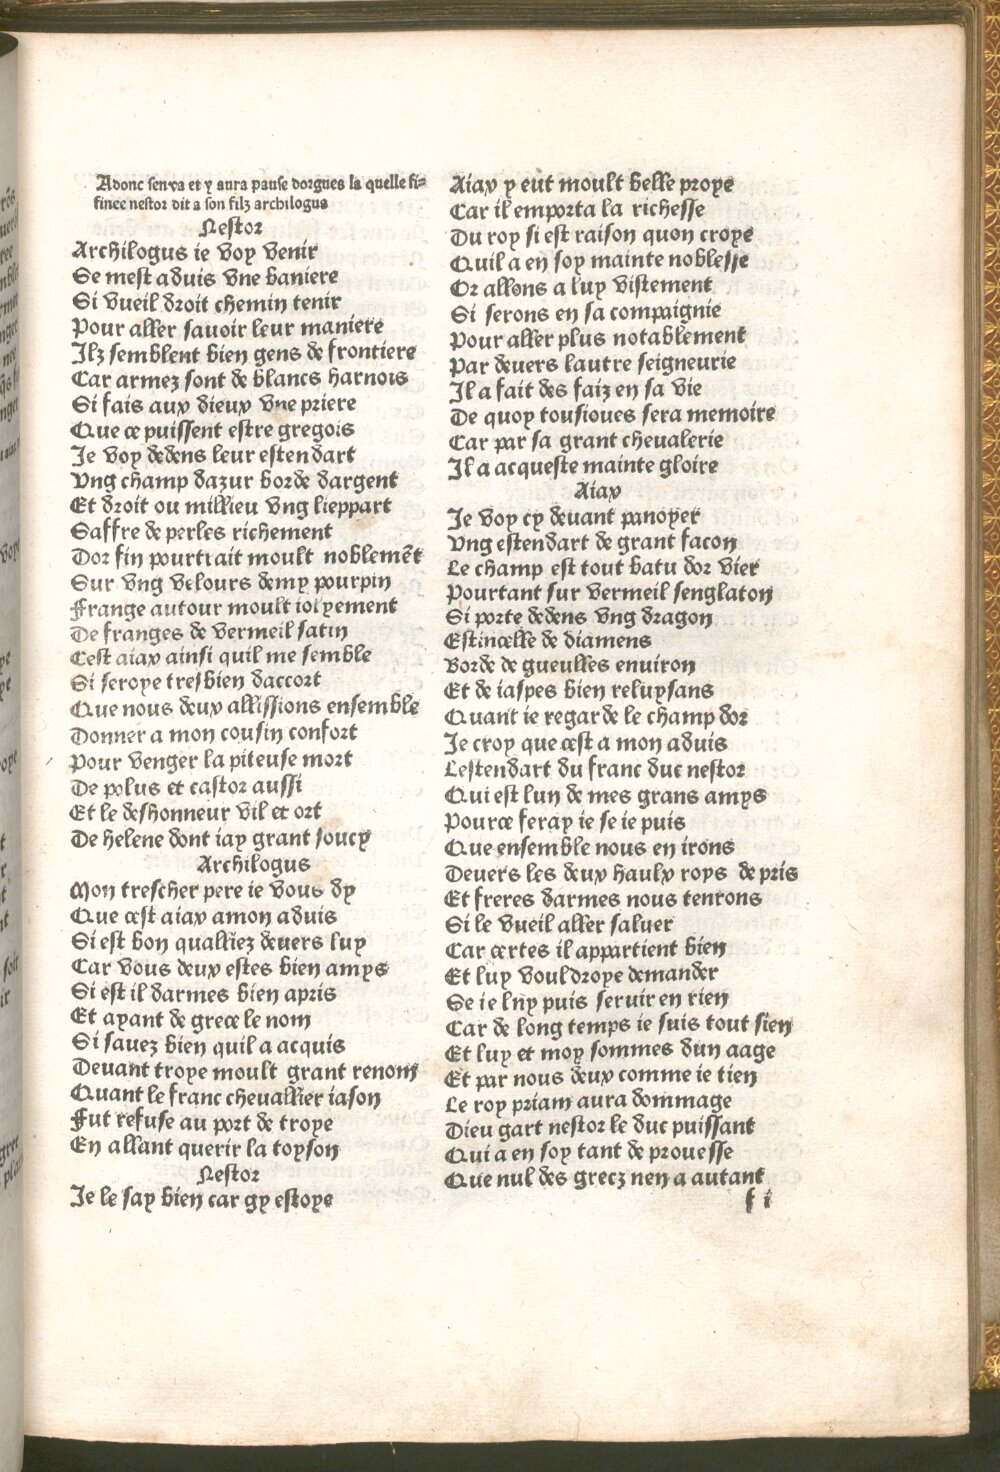 Adonc senva et y aura pause dorgues la quelle fi=
finee nestor dit a son filz archilogus
Nestor
Archilogus ie voy venir
Se mest aduis vne baniere
Si vueil droit chemin tenir
Pour aller sauoir leur maniere
Ilz semblent bien gens de frontiere
Car armez sont de blancs harnois
Si fais aux dieux vne priere
Que ce puissent estre gregois
Je voy dedens leur estendart
Vng champ dazur borde dargent
Et droit ou millieu vng lieppart
Saffre de perles richement
Dor fin pourtrait moult noblemẽt
Sur vng velours demy pourpin
Frange autour moult iolyement
De franges de vermeil satin
Cest aiax ainsi quil me semble
Si seroye tresbien daccort
Que nous deux allissions ensemble
Donner a mon cousin confort
Pour venger la piteuse mort
De polus et castor aussi
Et le deshonneur vil et ort
De helene dont iay grant soucy
Archilogus
Mon trescher pere ie vous dy
Que cest aiax amon aduis
Si est bon qualliez deuers luy
Car vous deux estes bien amys
Si est il darmes bien apris
Et ayant de grece le nom
Si sauez bien quil a acquis
Deuant troye moult grant renom
Quant le franc cheuallier iason
Fut refuse au port de troye
En allant querir la toyson
Nestor
Je le say bien car gy estoye
Aiax y eut moult belle proye
Car il emporta la richesse
Du roy si est raison quon croye
Quil a en soy mainte noblesse
Or allons a luy vistement
Si serons en sa compaignie
Pour aller plus notablement
Par deuers lautre seigneurie
Il a fait des faiz en sa vie
De quoy tousioues sera memoire
Car par sa grant cheualerie
Il a acqueste mainte gloire
Aiax
Je voy cy deuant panoyer
Vng estendart de grant facon
Le champ est tout batu dor vier
Pourtant sur vermeil senglaton
Si porte dedens vng dragon
Estincelle de diamens
Borde de gueulles enuiron
Et de iaspes bien reluysans
Quant ie regarde le champ dor
Je croy que cest a mon aduis
Lestendart du franc duc nestor
Qui est lun de mes grans amys
Pource feray ie se ie puis
Que ensemble nous en irons
Deuers les deux haulx roys de pris
Et freres darmes nous tenrons
Si le vueil aller saluer
Car certes il appartient bien
Et luy vouldroye demander
Se ie luy puis seruir en rien
Car de long temps ie suis tout sien
Et luy et moy sommes dun aage
Et par nous deux comme ie tien
Le roy priam aura dommage
Dieu gart nestor le duc puissant
Qui a en soy tant de prouesse
Que nul des grecz nen a autant
f i